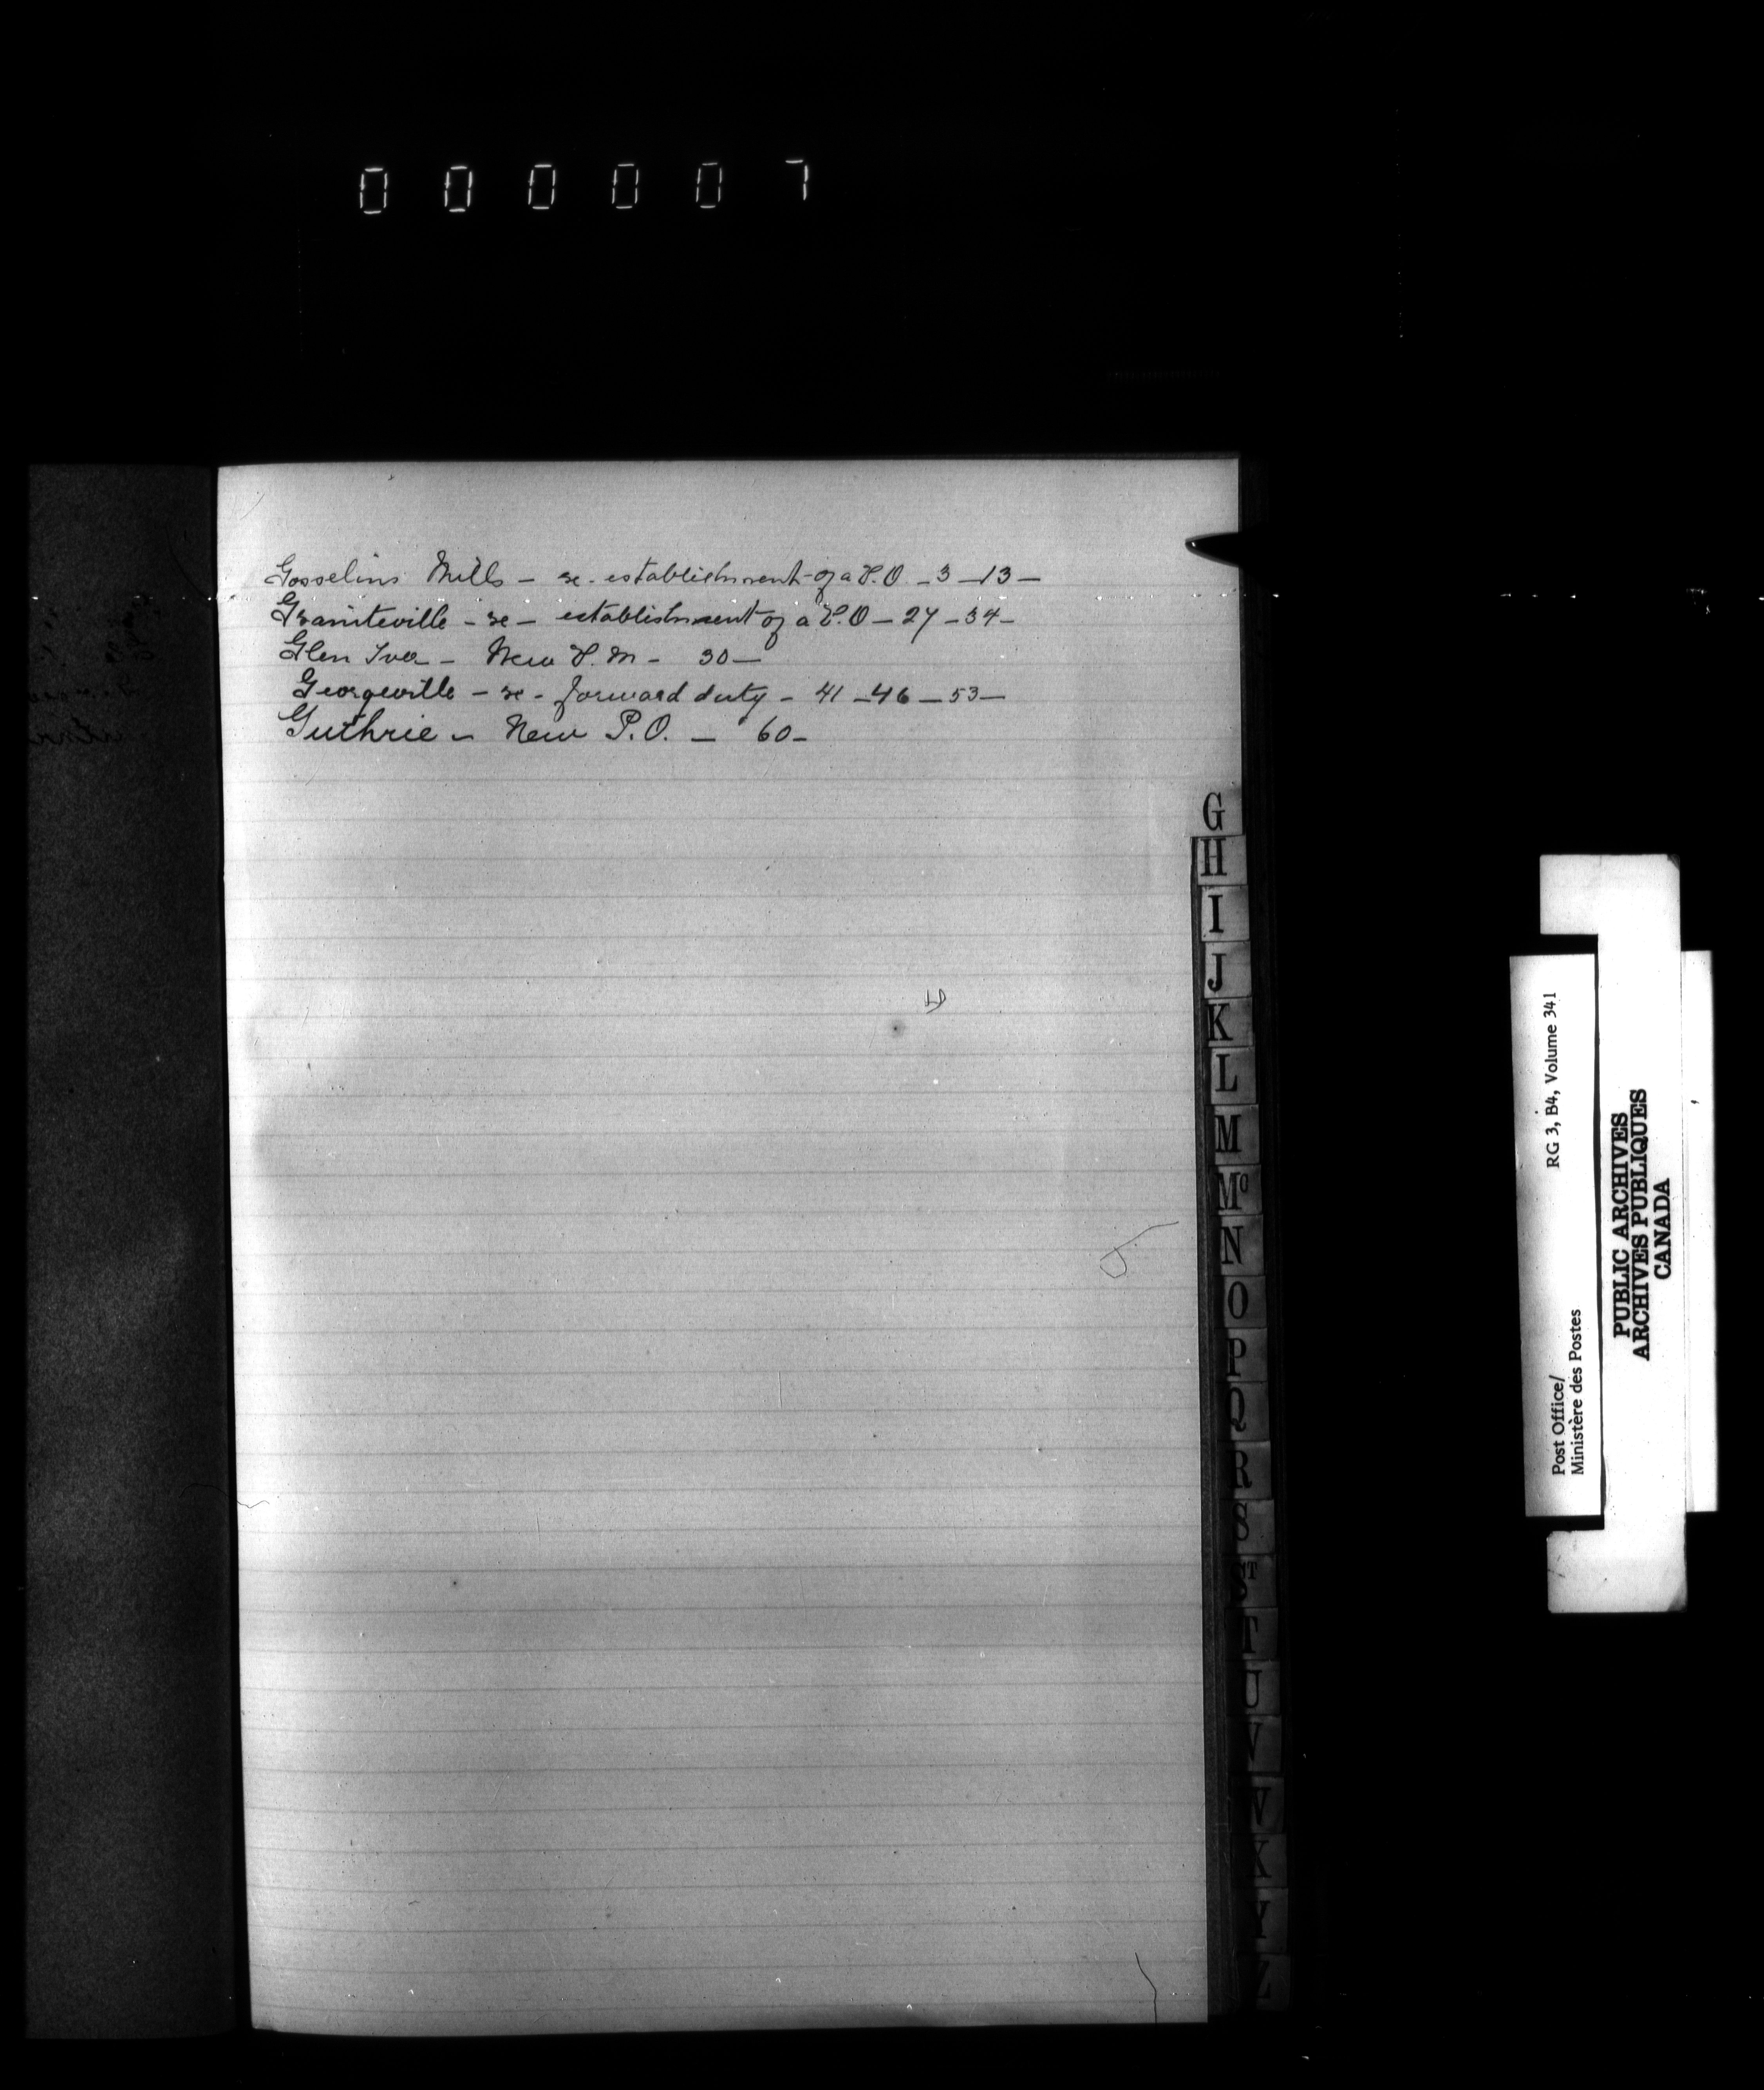 000007
Gosselins Mills – re-establishment of a P.O – 3 – 13 –
Graniteville – re – establishment of a P.O – 27 – 34 –
Glen Iver – New P.M – 30 –
Georgeville – re – forward duty – 41 – 46 – 53 –
Guthrie – New P.O. – 60 –
G
H
I
J
K
L
M
Mc
N
O
P
Q
R
S
ST
T
U
V
W
X
Y
Z
Post Office/
Ministère des Postes
RG 3, B4, Volume 341
PUBLIC ARCHIVES
ARCHIVES PUBLIQUES
CANADA